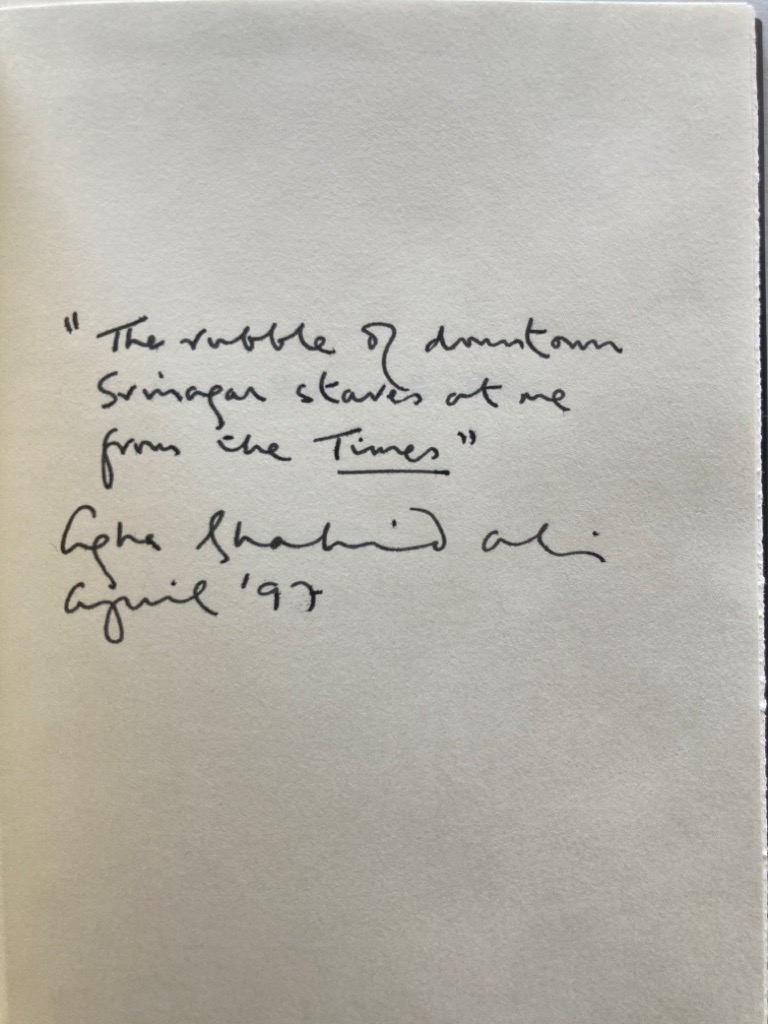 "The rubble of downtown
Srinagar stares at me
from the Times"
Agha Shahid Ali
April '97